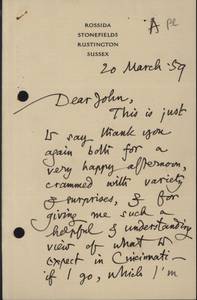 ROSSIDA
STONEFIELDS
RUSTINGTON
SUSSEX
A
20 March '59
Dear John,
This is just
to say thank you
again both for a
very happy afternoon,
crammed with variety
& surprises, & for
giving me such a
helpful & understanding
view of what to
expect in Cincinnati –
if I go, which I'm